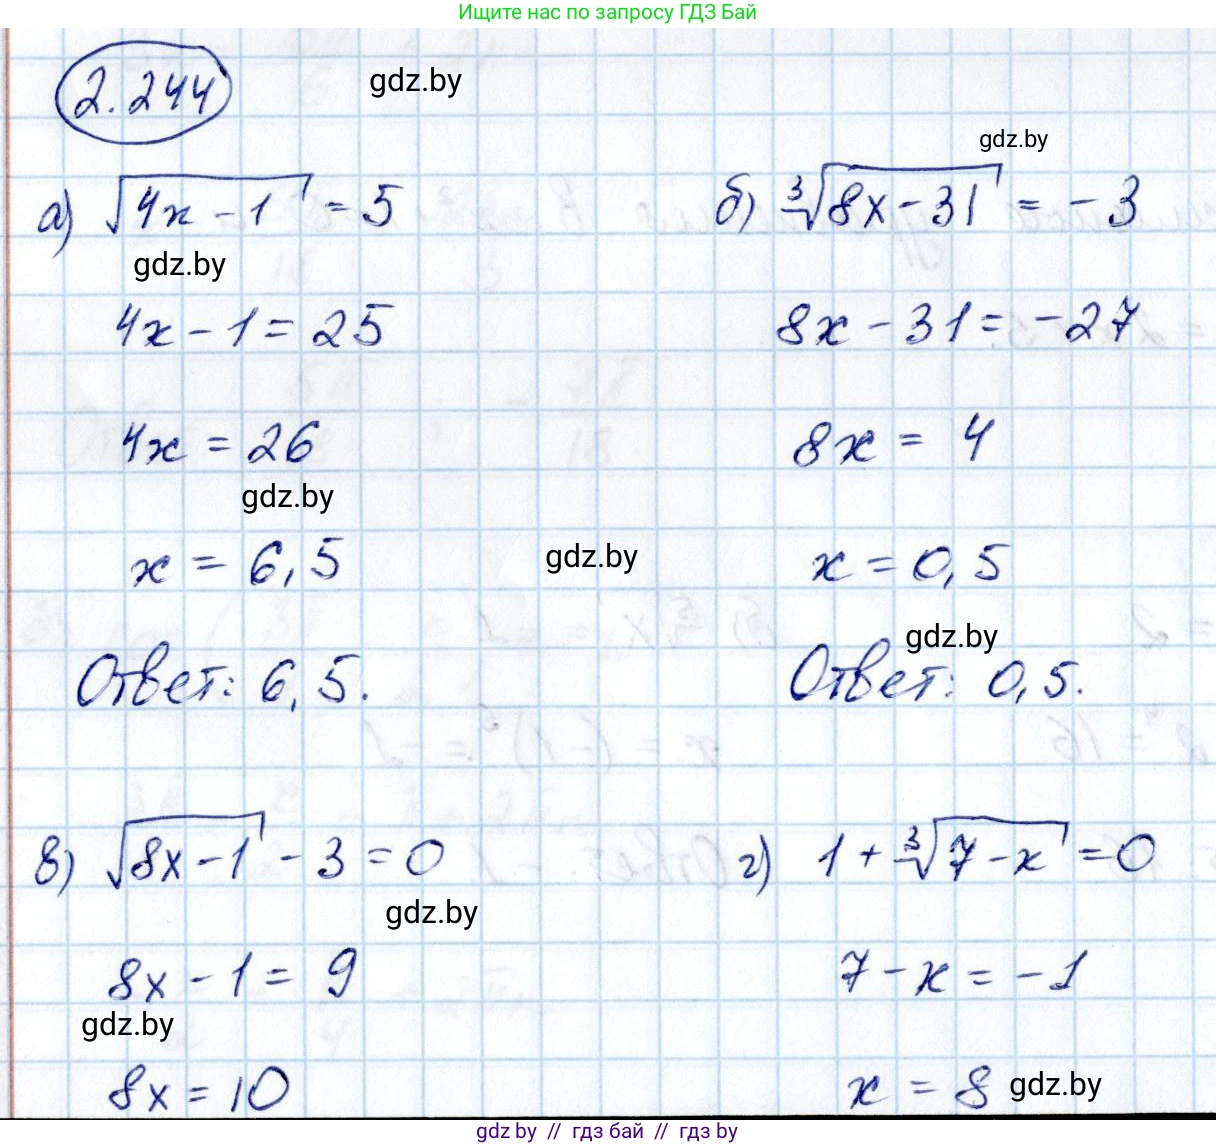 Ищите нас по запросу ГДЗ Бай
2.244
gdz.by
gdz.by
а) √(4x - 1) = 5
gdz.by
4x - 1 = 25
4x = 26
gdz.by
x = 6,5
gdz.by
Ответ: 6,5.
б) ∛(8x - 31) = -3
8x - 31 = -27
8x = 4
x = 0,5
gdz.by
Ответ: 0,5.
в) √(8x - 1) - 3 = 0
gdz.by
8x - 1 = 9
gdz.by
8x = 10
г) 1 + ∛(7 - x) = 0
7 - x = -1
x = 8
gdz.by
gdz.by // гдз бай // гдз by